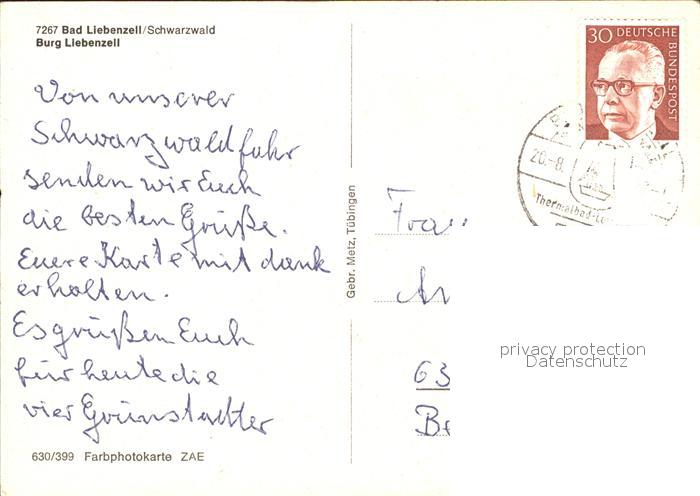 7267 Bad Liebenzell/Schwarzwald
Burg Liebenzell
Von unserer
Schwarzwaldfahr
senden wir Euch
die besten Grüße.
Euere Karte mit dank
erhalten.
Es grüßen Euch
für heute die
vier Grünstadter
630/399 Farbphotokarte ZAE
Gebr. Metz, Tübingen
30 DEUTSCHE
BUNDESPOST
20.-8.
Thermalbad-
Frau
63
privacy protection
Datenschutz